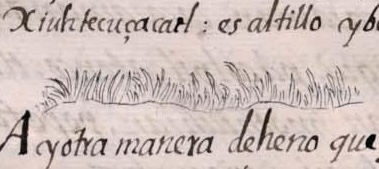 Xiuhtecuçacatl: es altillo y
Ay otra manera de heno que